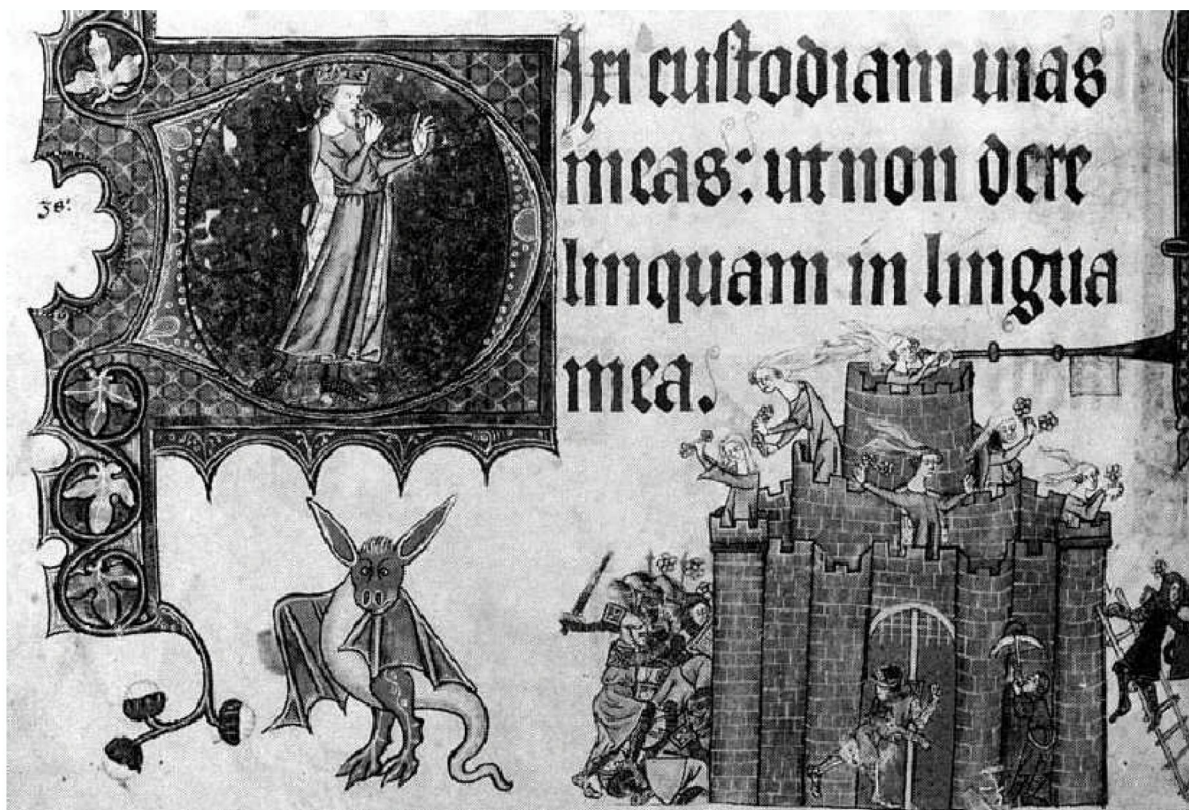 38.
Dixi custodiam uias
meas: ut non dere
linquam in lingua
mea.